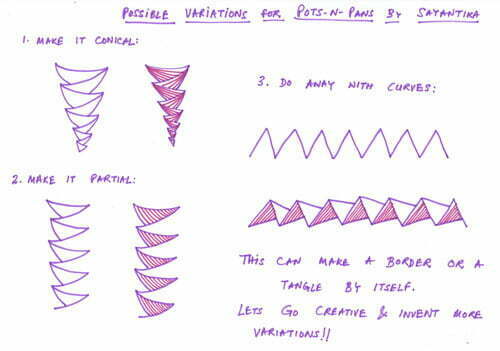 POSSIBLE VARIATIONS FOR POTS-N-PANS BY SAYANTIKA
1. MAKE IT CONICAL:
2. MAKE IT PARTIAL:
3. DO AWAY WITH CURVES:
THIS CAN MAKE A BORDER OR A
TANGLE BY ITSELF.
LETS GO CREATIVE & INVENT MORE
VARIATIONS!!